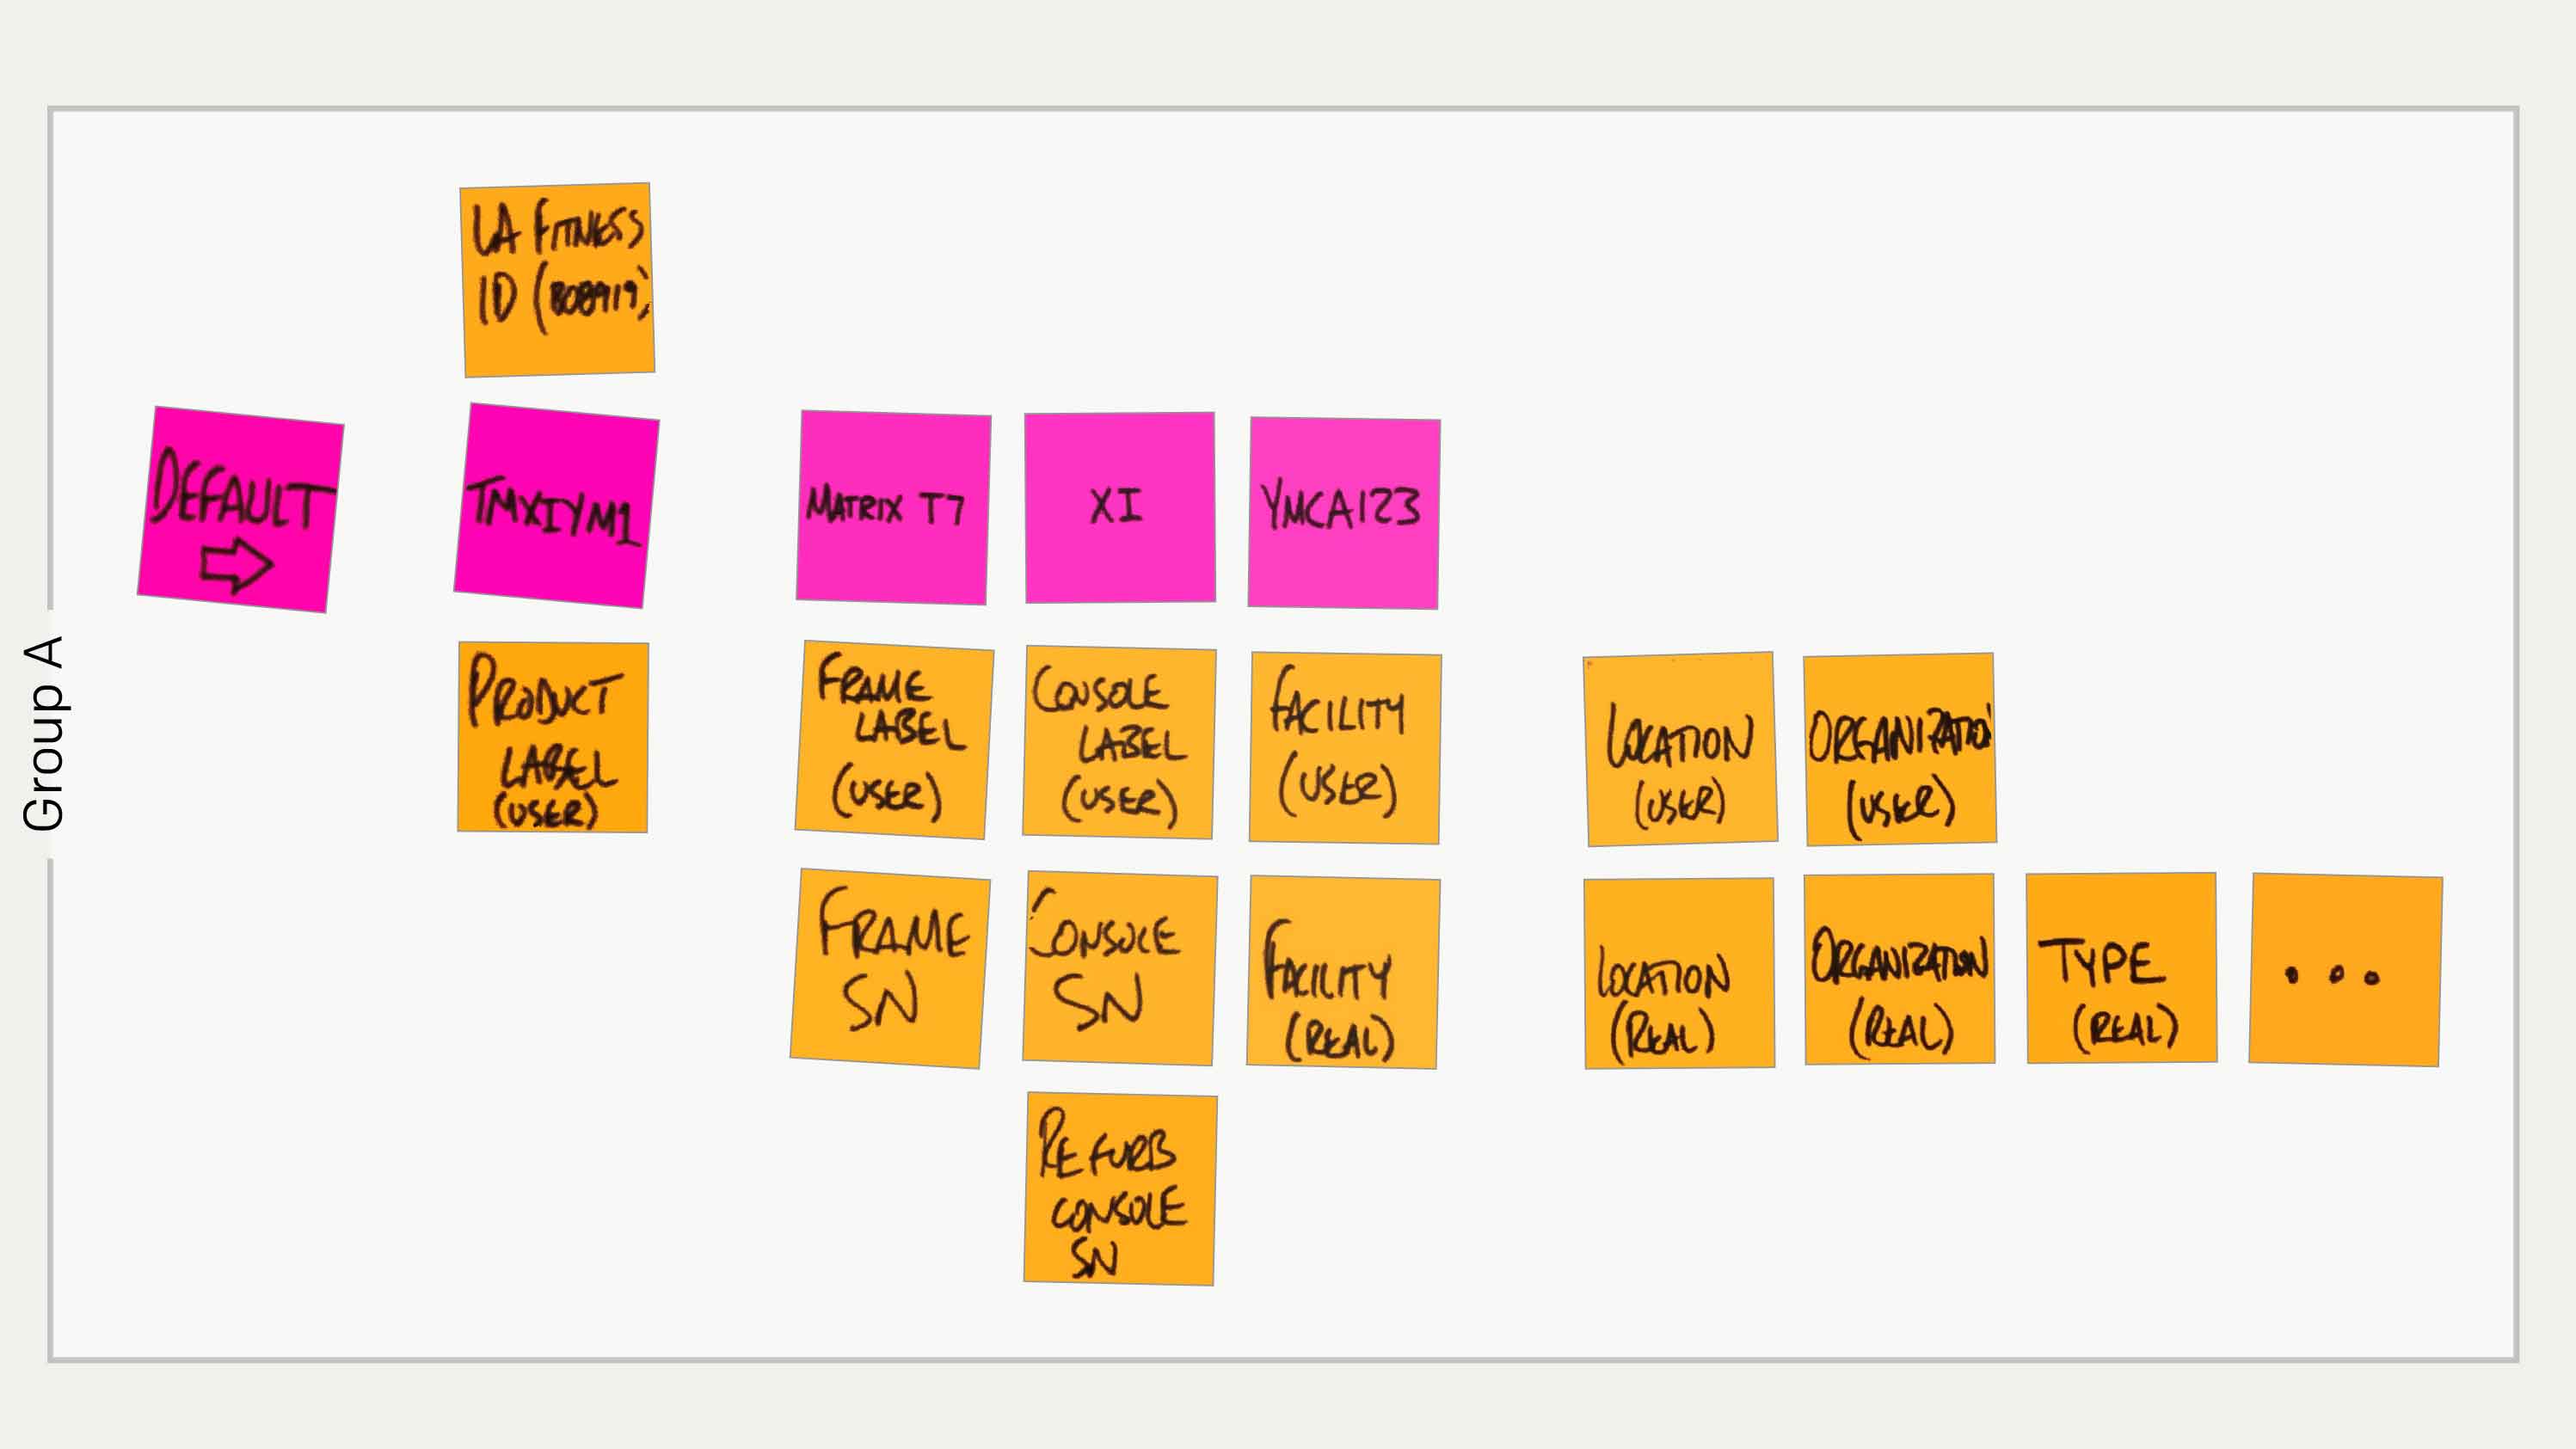 Group A
LA FITNESS
ID (808919)
DEFAULT
TMXIYM1
MATRIX T7
XI
YMCA123
PRODUCT
LABEL
(USER)
FRAME
LABEL
(USER)
CONSOLE
LABEL
(USER)
FACILITY
(USER)
LOCATION
(USER)
ORGANIZATION
(USER)
FRAME
SN
CONSOLE
SN
FACILITY
(REAL)
LOCATION
(REAL)
ORGANIZATION
(REAL)
TYPE
(REAL)
...
REFURB
CONSOLE
SN